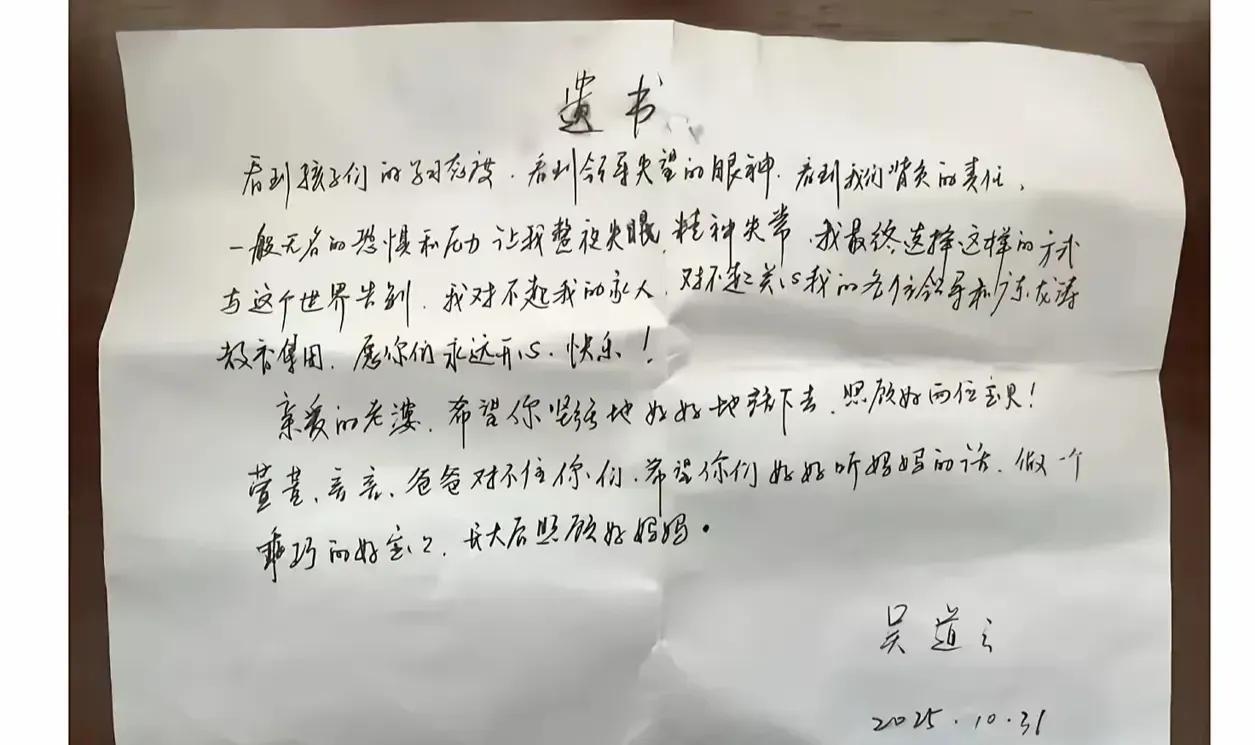 遗书
看到孩子们的学习态度、看到领导失望的眼神、看到我们背负的责任、
一般无名的恐惧和压力让我整夜失眠,精神失常、我最终选择这样的方式
与这个世界告别、我对不起我的家人、对不起关心我的各位领导和龙涛
教育集团、愿你们永远开心、快乐!
亲爱的老婆、希望你坚强地好好地活下去、照顾好两位宝贝!
萱萱、爸爸对不住你们、希望你们好好听妈妈的话、做一个
乖巧的好宝宝、长大后照顾好妈妈。
吴道
2025.10.31